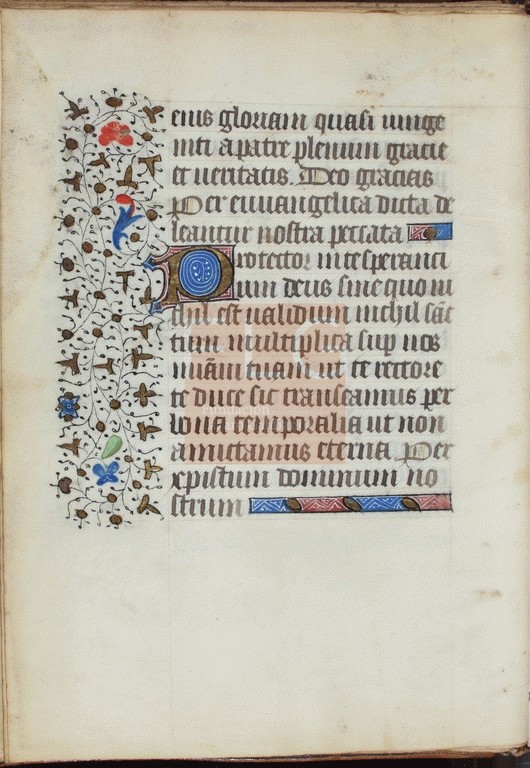 eius gloriam quasi unige
niti a patre plenum gracie
et ueritatis. Deo gracias
Per euuangelica dicta de
leantur nostra peccata
Protector in te speranci
um deus sine quo ni
chil est ualidum nichil sāc
tum multiplica sup nos
miām tuam ut te rectore
te duce sic transeamus per
bona temporalia ut non
amictamus eterna. Per
xpistum dominum no
strum
fundación